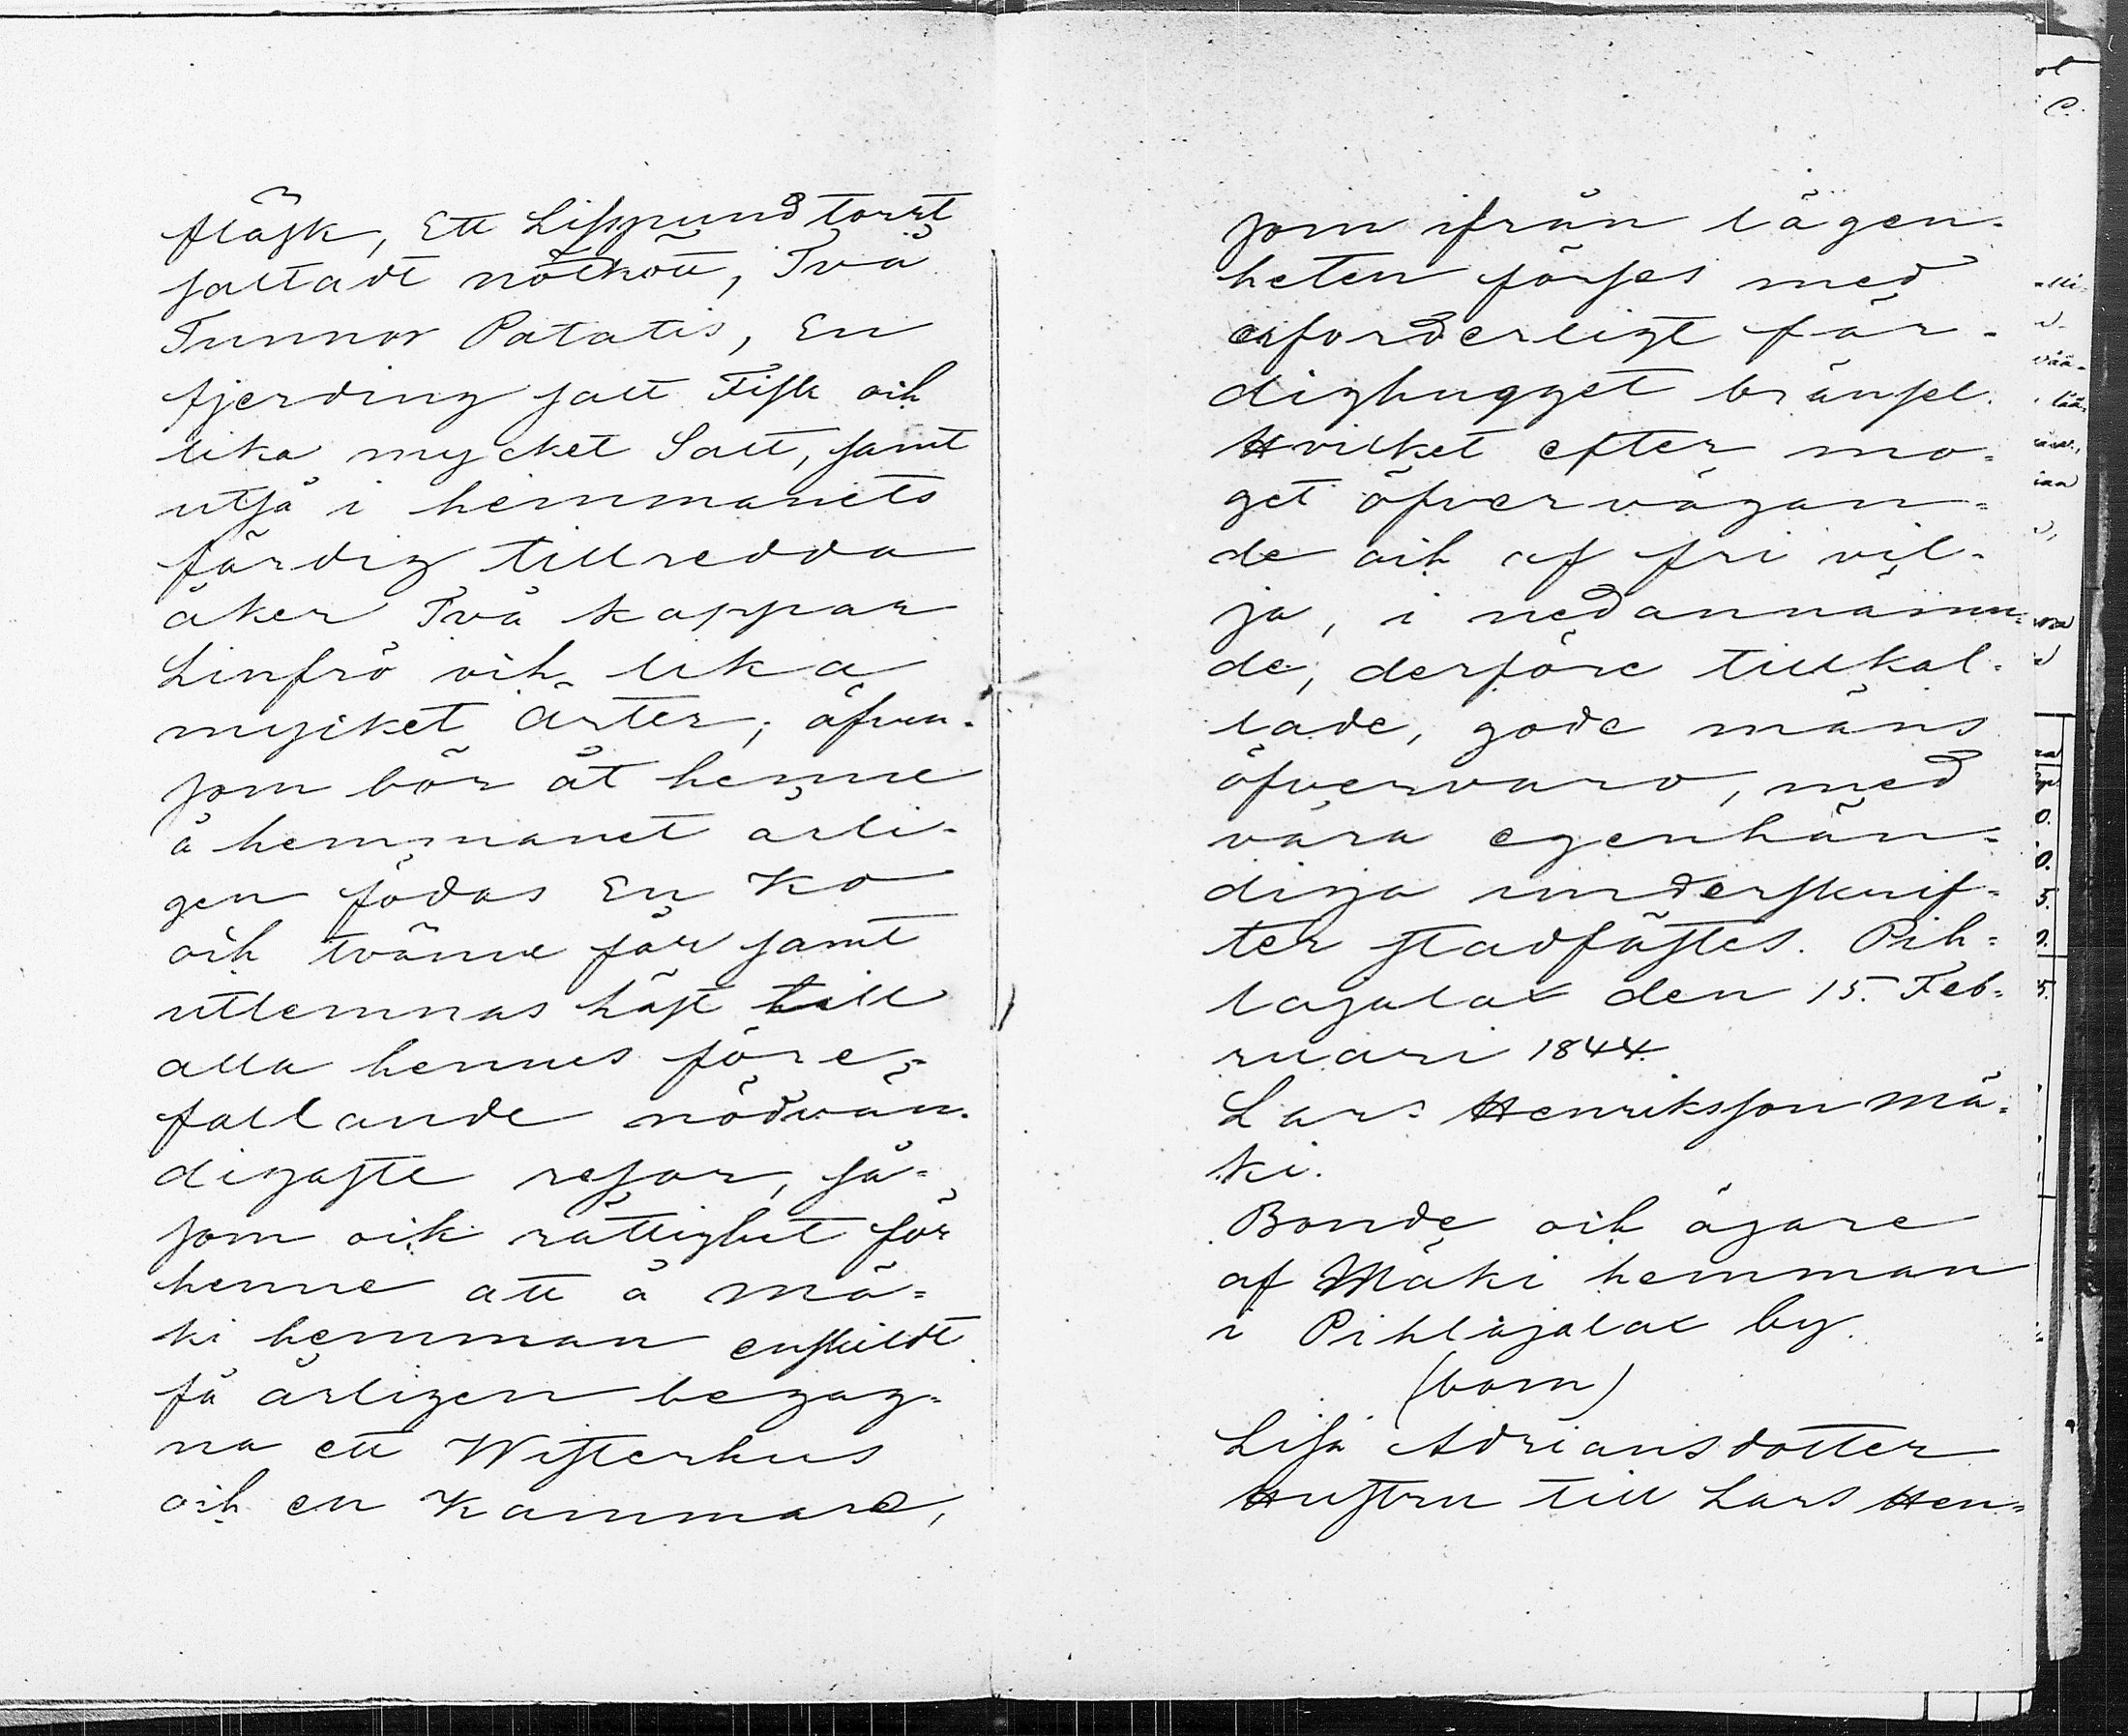 fläsk, Ett Lispund torrt
saltadt nötkött, Två
Tunnor Potatis, En
fjerding salt Fisk och
lika mycket Salt, samt
utså i hemmanets
färdig tillredda
åker Två kappar
Linfrö och lika
mycket ärter; äfven-
som bör åt henne
å hemmanet årli-
gen födas En Ko
och tvänne får samt
utlemnas häst till
alla hennes före-
fallande nödvän-
digaste resor, så-
som ock rättighet för
henne att å Mä-
ki hemman enskildt
få årligen begag-
na ett Wisterhus
och en Kammare,
som ifrån lägen-
heten förses med
erforderligt fär-
dighugget bränsel.
Hvilket efter mo-
get öfvervägan-
de och af fri vil-
ja, i nedannämn-
de, derföre tillkal-
lade, gode mäns
öfvervaro, med
våra egenhän-
diga underskrif-
ter stadfästes. Pih-
lajalax den 15. Feb-
ruari 1844.
Lars Henriksson Mä-
ki.
Bonde och ägare
af Mäki hemman
i Pihlajalax by.
(bom)
Lisa Adriansdotter
Hustru till Lars Hen-